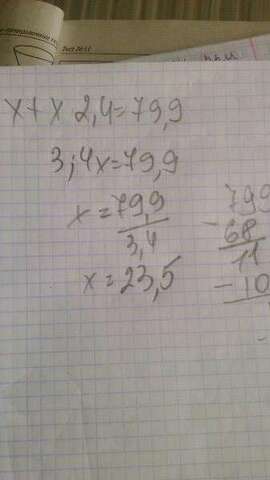 x+x 2,4=79,9
3,4x=79,9
x=79,9
3,4
x=23,5
799
-68
11
-10